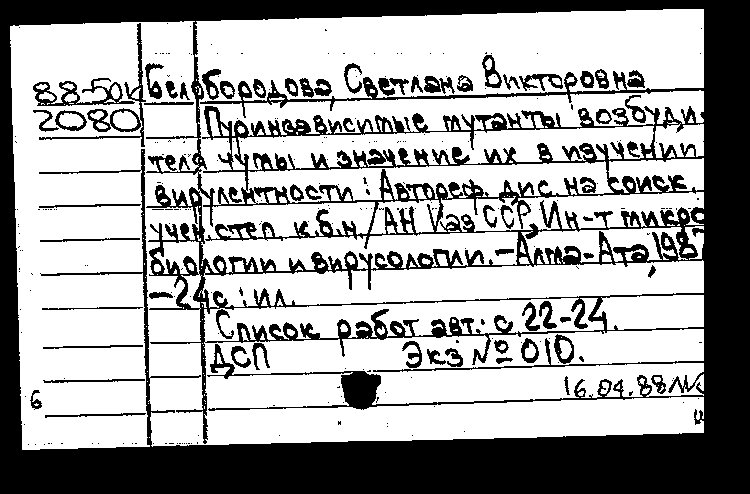 88-50к Белобородова, Светлана Викторовна
2080 Пуринзависимые мутанты возбуди-
теля чумы и значение их в изучении
вирулентности : Автореф. дис. на соиск.
учен. степ. к.б.н. / АН КазССР, Ин-т микро
биологии и вирусологии. - Алма-Ата, 198
- 24 с. : ил.
Список работ авт.: с. 22-24.
ДСП Экз № 010.
16.04.88
6